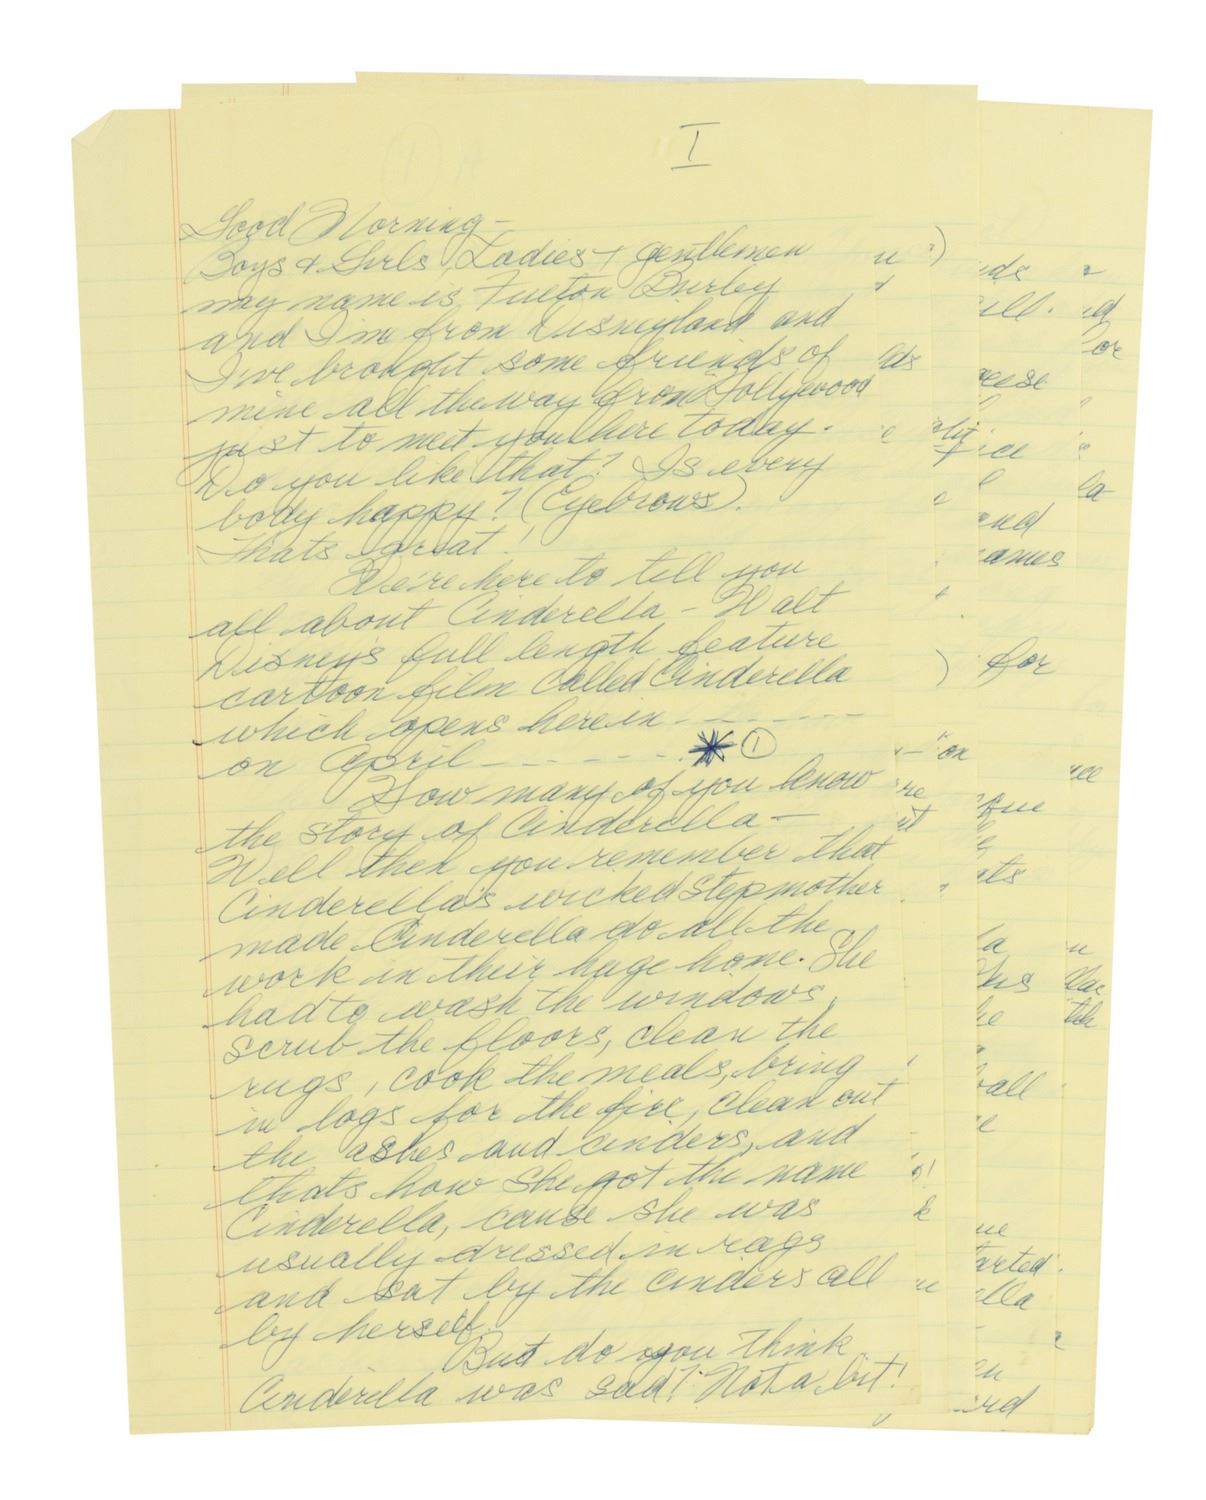 I
Good Morning –
Boys & Girls, Ladies + gentlemen
my name is Fulton Burley
and I'm from Disneyland and
I've brought some friends of
mine all the way from Hollywood
just to meet you here today.
Do you like that? Is every
body happy? (Eyebrows).
Thats great!
We're here to tell you
all about Cinderella – Walt
Disney's full length feature
cartoon film called Cinderella
which opens here in - - - - - - -
on April - - - - - - * ①
How many of you know
the story of Cinderella –
Well then you remember that
Cinderella's wicked stepmother
made Cinderella do all the
work in their huge home. She
had to wash the windows,
scrub the floors, clean the
rugs, cook the meals, bring
in logs for the fire, clean out
the ashes and cinders, and
thats how she got the name
Cinderella, cause she was
usually dressed in rags
and sat by the cinders all
by herself.
But do you think
Cinderella was sad? Not a bit!